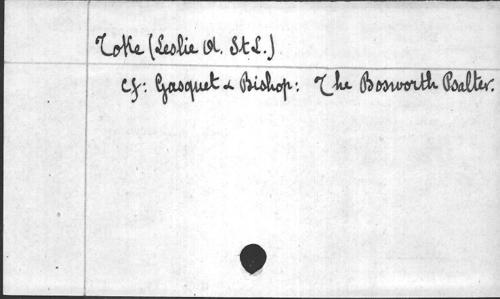 Toke (Leslie A. St L.)
cf: Gasquet & Bishop: The Bosworth Psalter.